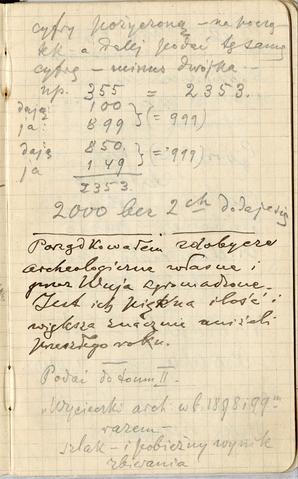 cyfry pożyczoną – na począ
tek – a dalej podać tę samą
cyfrę – minus dwójka –
np. 355 = 2353.
dają: 100
ja: 899 } (= 999)
dają 850.
ja 149 } (= 999)
2353.
2000 bez 2ch dodaje się
Porządkowałem zdobycze
archeologiczne własne i
przez Wuja zgromadzone.
Jest ich piękna ilość i
większa znacznie aniżeli
przeszłego roku.
Podać do tomu II.
„Wycieczki arch w b. 1898 i 99"
razem –
szlak – i pobieżny wynik
zbierania